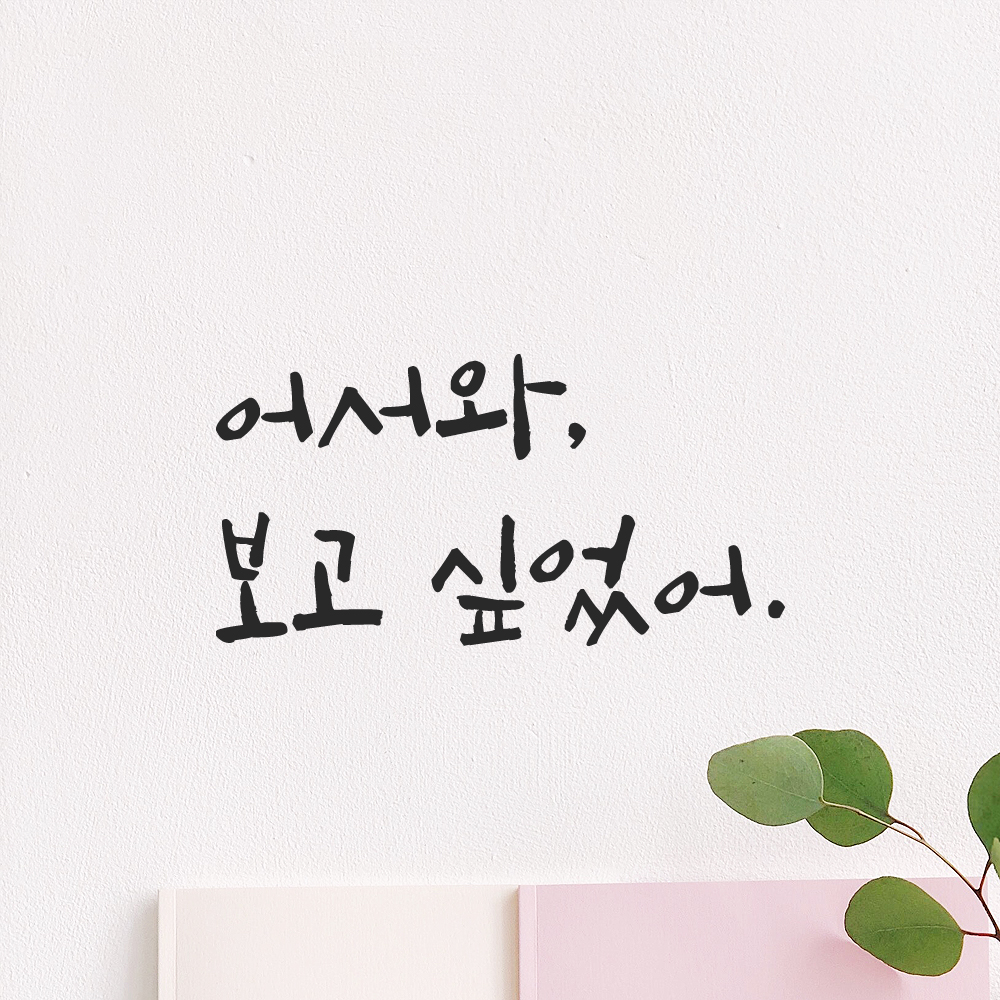 어서와,
보고 싶었어.